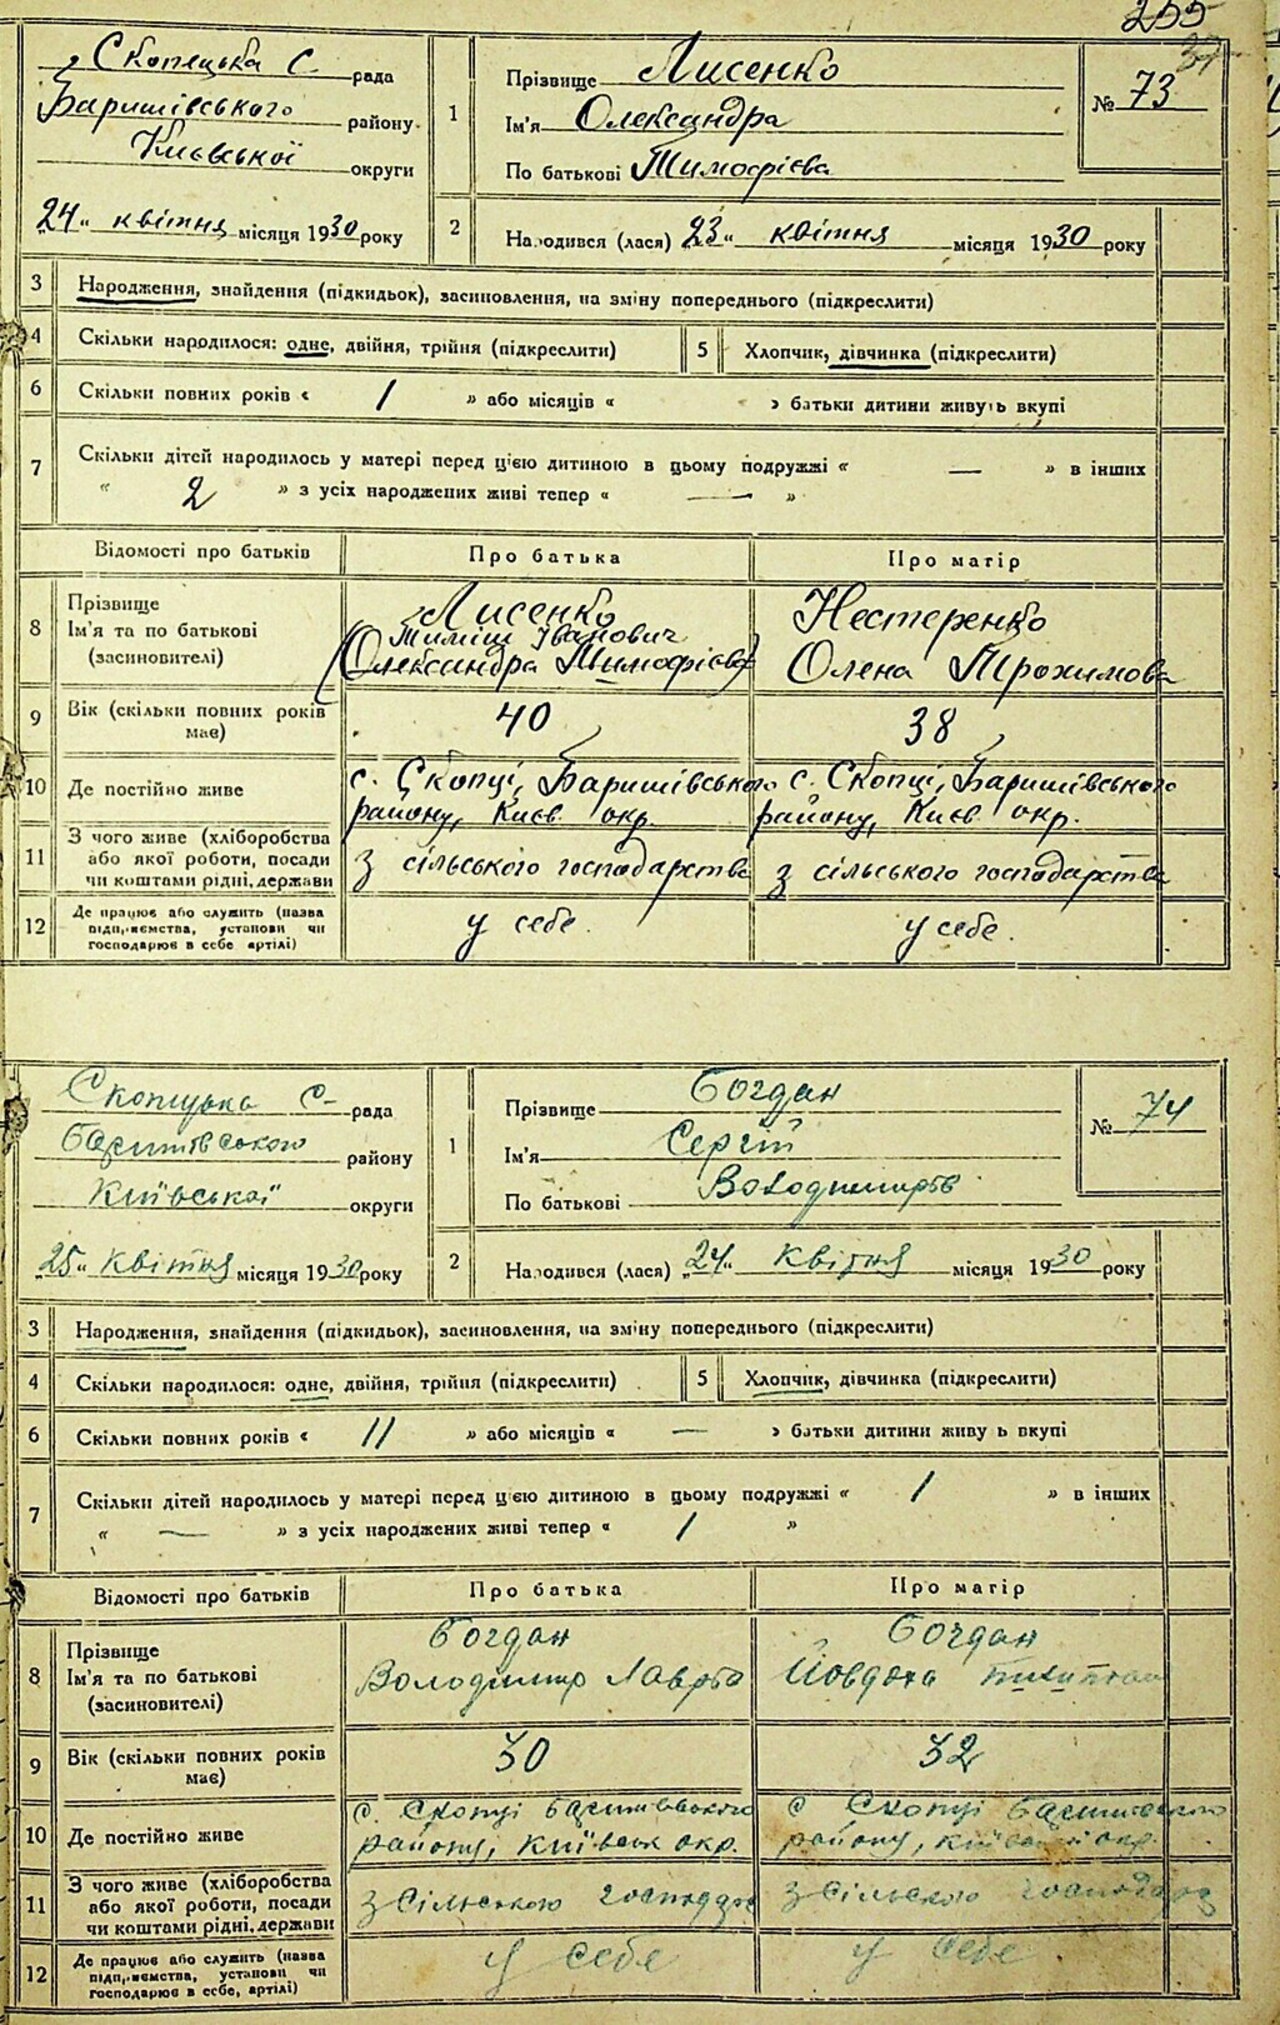 255
37
Скопецька с. рада
Баришівського району
Київської округи
„24“ квітня місяця 1930 року
1
Прізвище Лисенко
Ім'я Олександра
По батькові Тимофієва
№ 73
2
Народився (лася) „23“ квітня місяця 1930 року
3 Народження, знайдення (підкидьок), засиновлення, на зміну попереднього (підкреслити)
4 Скільки народилося: одне, двійня, трійня (підкреслити) 5 Хлопчик, дівчинка (підкреслити)
6 Скільки повних років « 1 » або місяців « » батьки дитини живуть вкупі
7 Скільки дітей народилось у матері перед цією дитиною в цьому подружжі « — » в інших
« 2 » з усіх народжених живі тепер « — »
Відомості про батьків Про батька Про матір
8 Прізвище
Ім'я та по батькові
(засиновителі)
Лисенко
Тиміш Іванович
(Олександра Тимофієва)
Нестеренко
Олена Трохимова
9 Вік (скільки повних років має) 40 38
10 Де постійно живе
с. Скопці, Баришівського
району, Київ. окр.
с. Скопці, Баришівського
району, Київ окр.
11 З чого живе (хліборобства
або якої роботи, посади
чи коштами рідні, держави
з сільського господарства
з сільського господарства
12 Де працює або служить (назва
підприємства, установи чи
господарює в себе артілі)
у себе.
у себе.
Скопецька с- рада
Баришівського району
Київської округи
„25“ квітня місяця 1930 року
1
Прізвище Богдан
Ім'я Сергій
По батькові Володимирів
№ 74
2
Народився (лася) „24“ квітня місяця 1930 року
3 Народження, знайдення (підкидьок), засиновлення, на зміну попереднього (підкреслити)
4 Скільки народилося: одне, двійня, трійня (підкреслити) 5 Хлопчик, дівчинка (підкреслити)
6 Скільки повних років « 11 » або місяців « — » батьки дитини живу ь вкупі
7 Скільки дітей народилось у матері перед цією дитиною в цьому подружжі « 1 » в інших
« — » з усіх народжених живі тепер « 1 »
Відомості про батьків Про батька Про матір
8 Прізвище
Ім'я та по батькові
(засиновителі)
Богдан
Володимир Лаврів
Богдан
Йовдоха
9 Вік (скільки повних років має) 30 32
10 Де постійно живе
с. Скопці Баришівського
району, Київськ окр.
с Скопці Баришівського
району, Київської окр.
11 З чого живе (хліборобства
або якої роботи, посади
чи коштами рідні, держави
з сільського
з сільського
12 Де працює або служить (назва
підприємства, установи чи
господарює в себе, артілі)
у себе
у себе